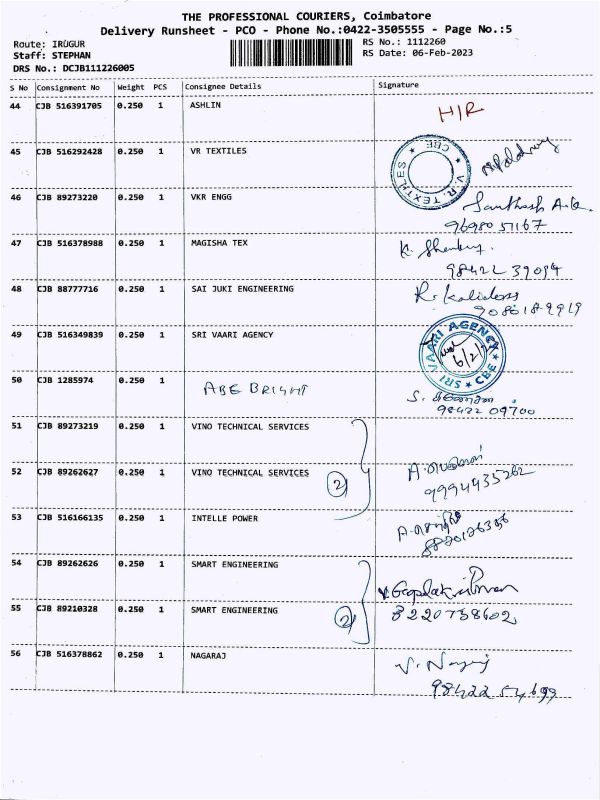 THE PROFESSIONAL COURIERS, Coimbatore
Delivery Runsheet - PCO - Phone No.:0422-3505555 - Page No.:5
Route: IRUGUR
RS No.: 1112260
Staff: STEPHAN
RS Date: 06-Feb-2023
DRS No.: DCJB111226005
S No Consignment No Weight PCS Consignee Details Signature
44 CJB 516391705 0.250 1 ASHLIN H/R
45 CJB 516292428 0.250 1 VR TEXTILES
V.R. TEXTILES ★ CBE ★
46 CJB 89273220 0.250 1 VKR ENGG Santhosh A.
96980 57167
47 CJB 516378988 0.250 1 MAGISHA TEX K.
98422 39094
48 CJB 88777716 0.250 1 SAI JUKI ENGINEERING R. Kalidoss
908018 9919
49 CJB 516349839 0.250 1 SRI VAARI AGENCY
SRI VAARI AGENCY ★ CBE ★
50 CJB 1285974 0.250 1 ABE BRIGHT S.
98422 09700
51 CJB 89273219 0.250 1 VINO TECHNICAL SERVICES
52 CJB 89262627 0.250 1 VINO TECHNICAL SERVICES 2 A.
9994935262
53 CJB 516166135 0.250 1 INTELLE POWER A.
54 CJB 89262626 0.250 1 SMART ENGINEERING V. Gopalakrishnan
55 CJB 89210328 0.250 1 SMART ENGINEERING 2 8220738602
56 CJB 516378862 0.250 1 NAGARAJ V. Nagaraj
98422 54699